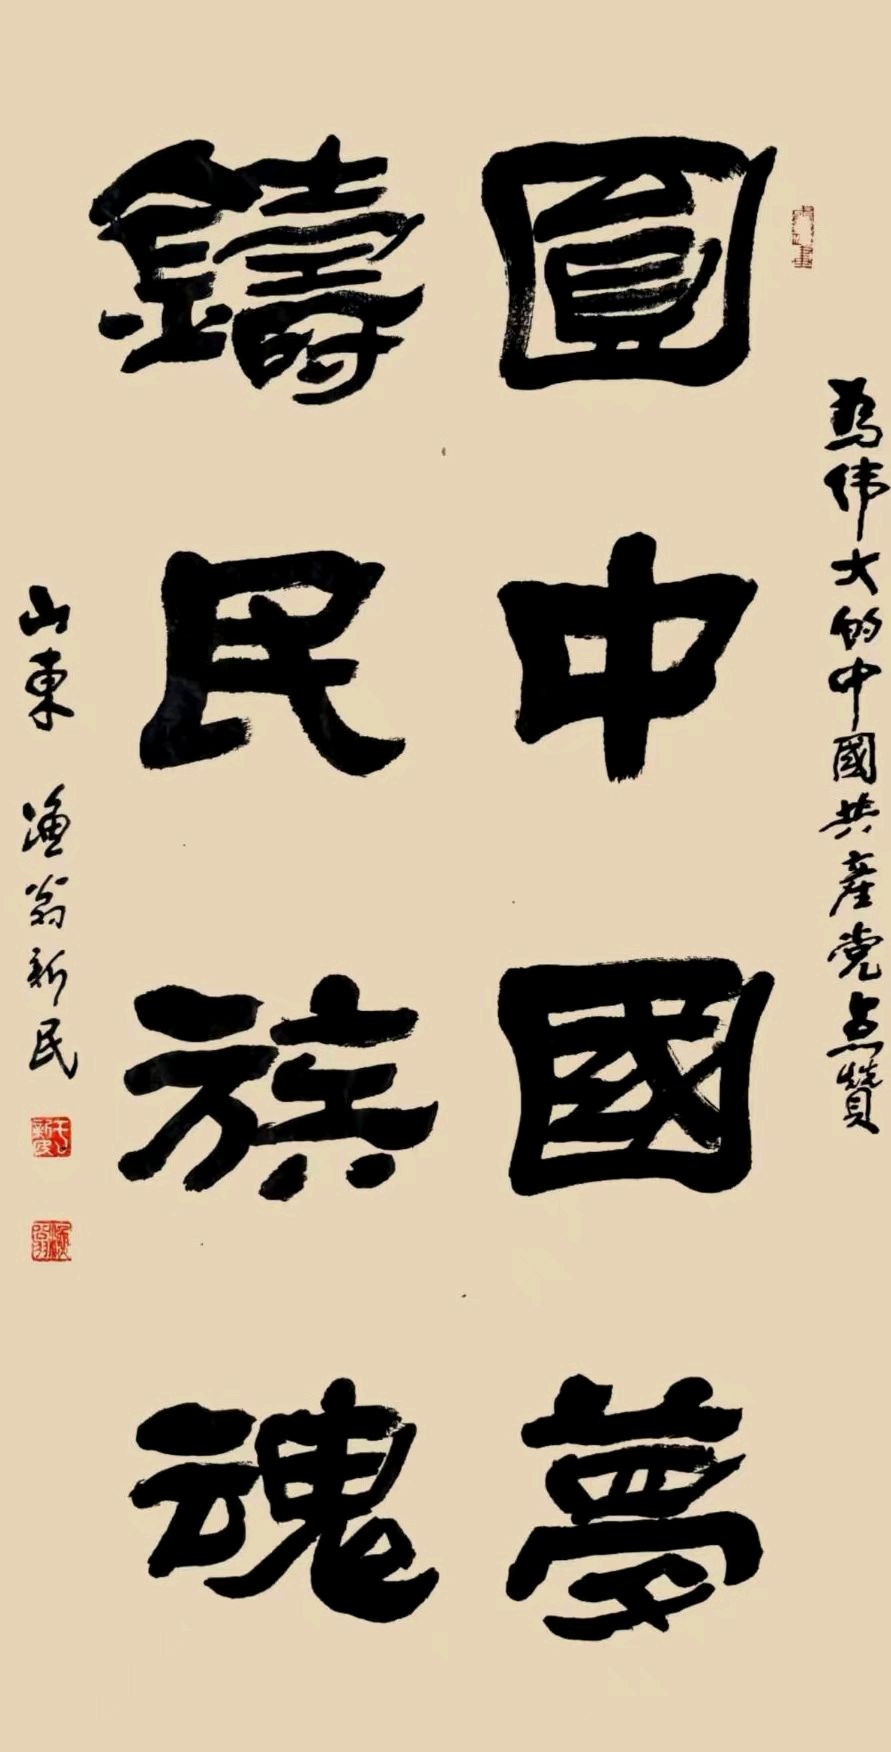 为伟大的中國共產党点赞
圓中國夢
鑄民族魂
山東 渔翁新民